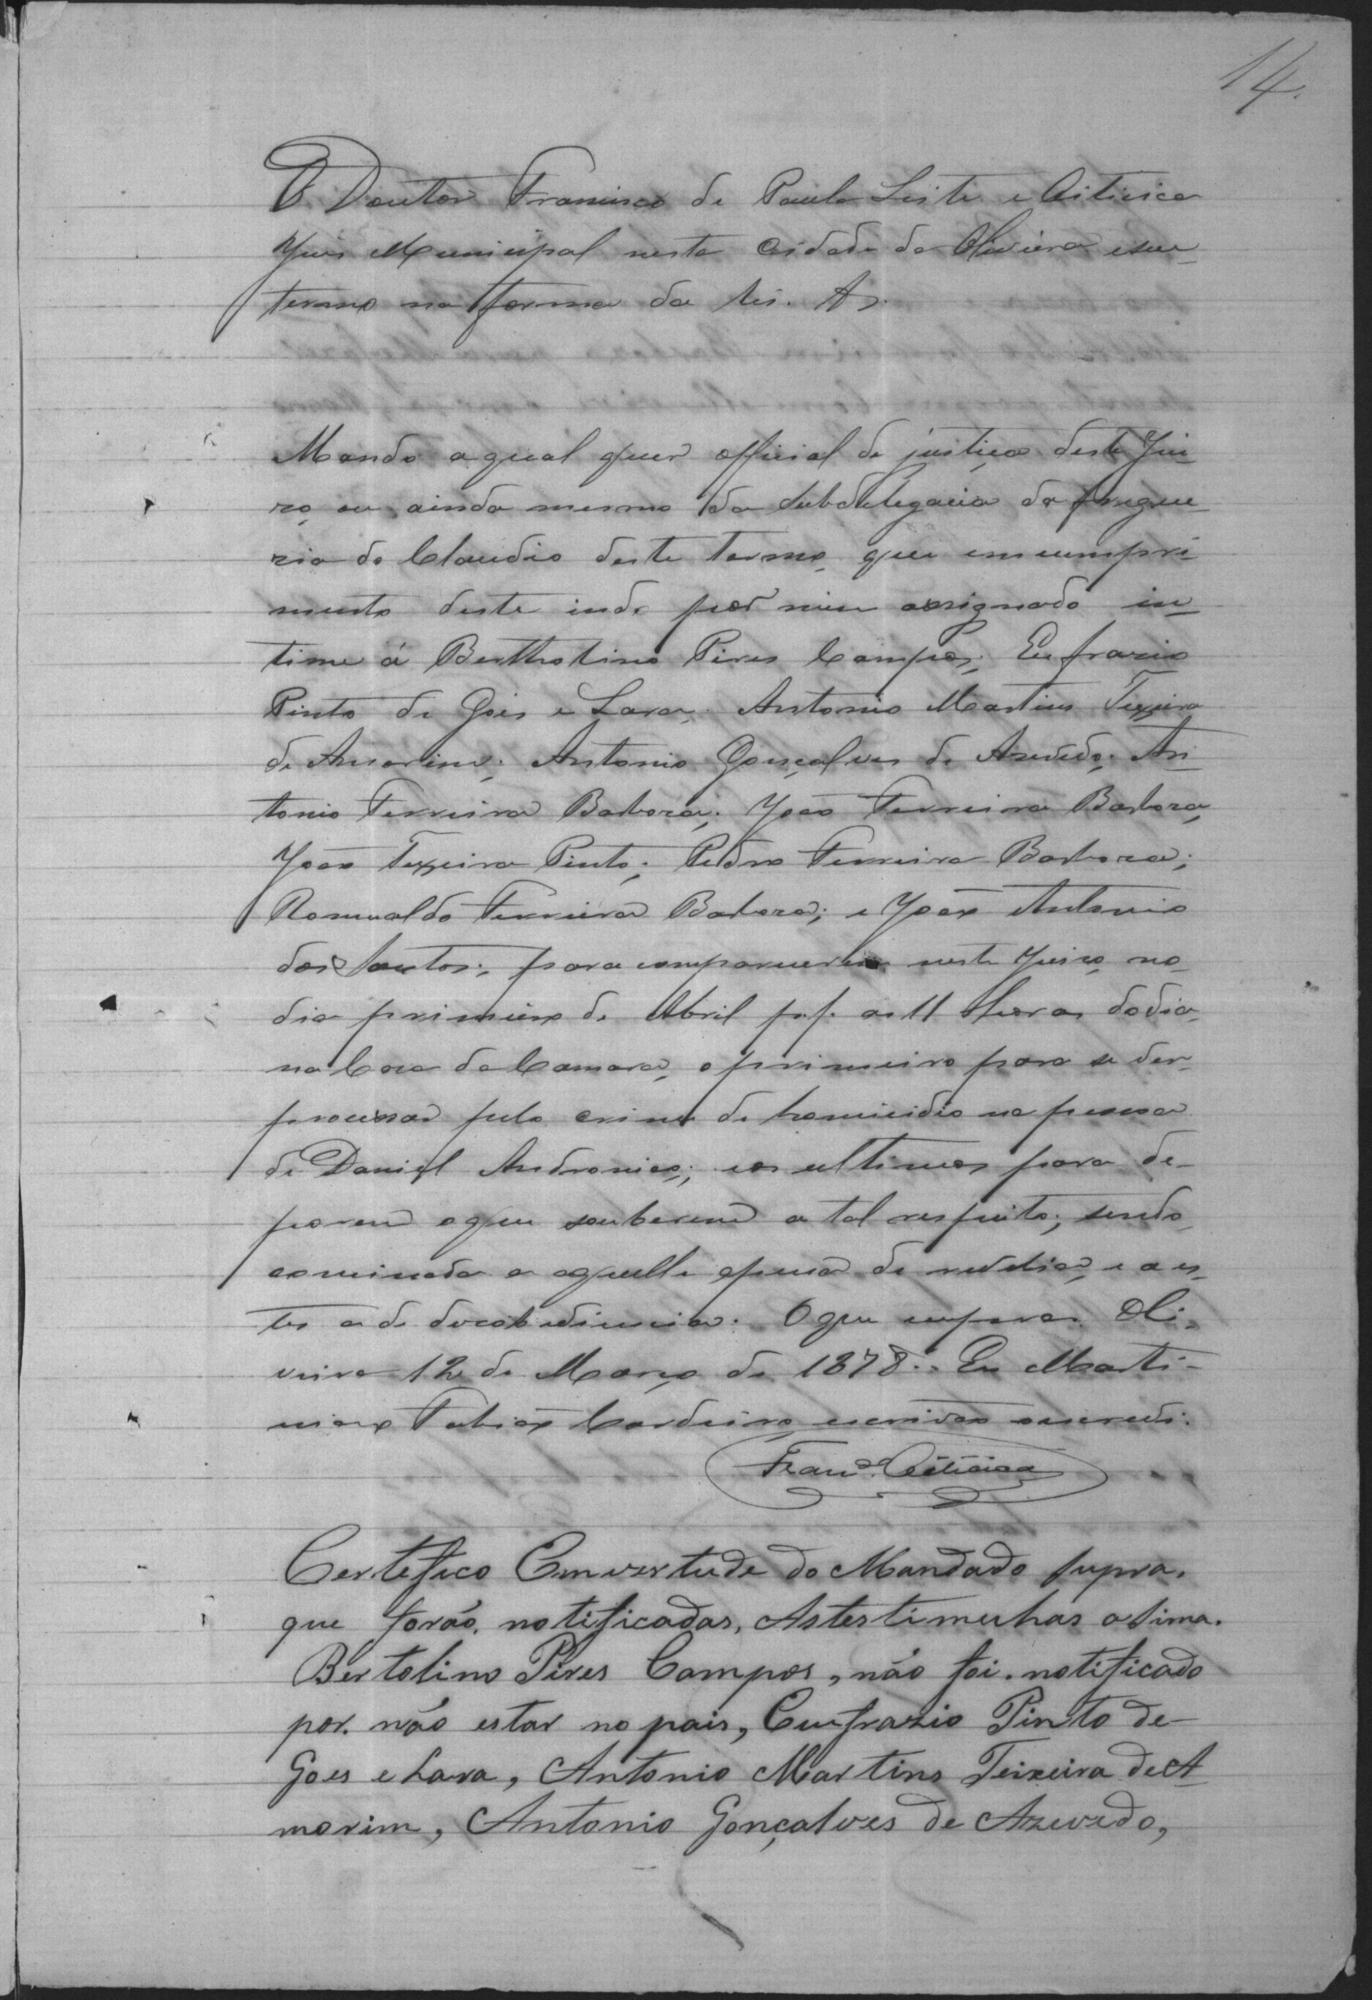 14.
O Doutor Francisco de Paula Leite e Oiticica
Juis Municipal nesta Cidade da Oliveira e seu
termo na forma da lei. &.
Mando a qual quer official de justiça deste Jui
zo, ou ainda mesmo da Subdelegacia da fregue
zia do Claudio deste termo, que em cumpri
mento deste indo por mim assignado in
time á Berthotino Pires Campos; Eufrazio
Pinto de Goes e Lara; Antonio Martins Teixeira
de Amorim; Antonio Gonçalves de Azevedo; An
tonio Ferreira Barboza; João Ferreira Barboza,
João Teixeira Pinto; Pedro Ferreira Barboza;
Romualdo Ferreira Barboza; e João Antonio
dos Santos; para comparecerem neste Juizo, no
dia primeiro de Abril p.f. as 11 horas do dia,
na Caza da Camara, o primeiro para se ver
processar pelo crime de homicidio na pessoa
de Daniel Andronico; e os ultimos para de-
porem o que souberem a tal respeito; sendo
cominada a aquelle a pena de revelia, e a es
tes a de desobediencia. O que cumpra. Oli
veira 12 de Março de 1878. Eu Marti-
niano Tobias Cardeiro, escrivão o escrevi.
Fran.co Oiticica
Certefico Em vertude do Mandado supra.
que forão. notificadas, As testimunhas a sima.
Bertolino Pires Campos, não foi. notificado
por. não estar no pais, Eufrazio Pinto de
Goes e Lara, Antonio Martins Teixeira de A
morim, Antonio Gonçalves de Azevedo,